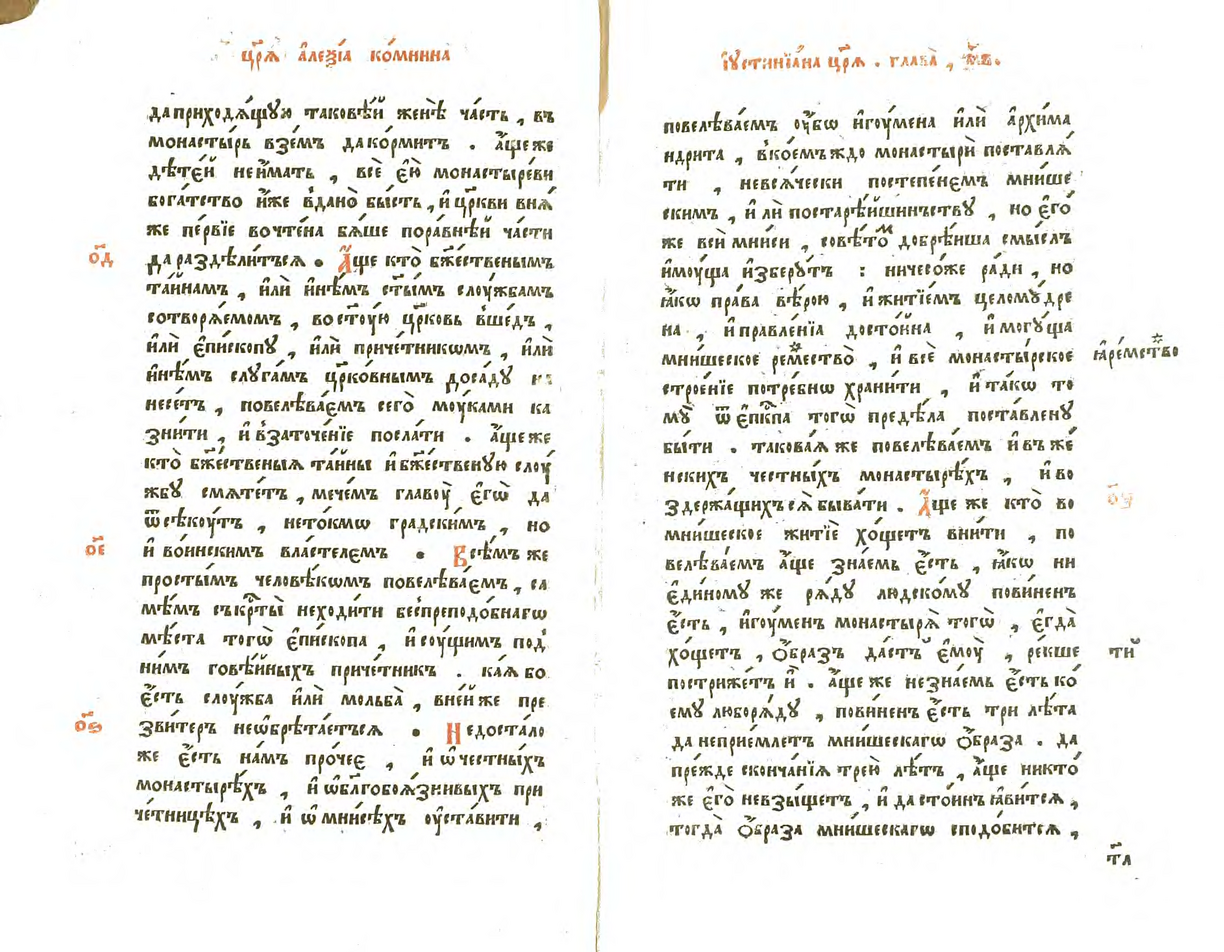 цр҃ѧ̀ а҆леѯі́а ко́мнина̀
да приходѧ́щꙋю таковѣ́й женѣ̀ ча́сть , въ
монасты́рь взе́мъ да ко́рмитъ . а҆́ще же
дѣте́й не и҆́мать , всѐ є҆ѐю̀ монастыре́ви
бога́тство и҆́же вдано̀ бы́сть , и҆ цр҃кви внѧ́
же пе́рвїе вочте́на бѧ́ше пора́внѣй ча́сти
да раздѣли́тьсѧ . А҆́ще кто̀ бж҃е́ственымъ
о҃д
та́йнамъ , и҆лѝ и҆нѣ́мъ ст҃ы́мъ слоу́жбамъ
сотворѧ́емомъ , во ст҃оу́ю цр҃ковь вше́дъ ,
и҆лѝ є҆пи́скопꙋ , и҆лѝ приче́тникѡмъ , и҆лѝ
и҆нѣ́мъ слꙋга́мъ цр҃ко́внымъ доса́дꙋ на
несе́тъ , повелѣва́емъ сего̀ моу́ками ка
зни́ти , и҆ в заточе́нїе посла́ти . а҆́ще же
кто̀ бж҃е́ственыѧ та́йны и҆ бж҃е́ственꙋю слоу́
жбꙋ смѧте́тъ , мече́мъ главоу̀ є҆гѡ̀ да
ѿсѣкоу́тъ , не то́кмѡ градски́мъ , но
и҆ во́инскимъ власте́лемъ . Всѣ́мъ же
о҃є
просты́мъ человѣ́кѡмъ повелѣва́емъ , са
мѣ́мъ съ кр҃ты̀ не ходи́ти бе́с преподо́бнагѡ
мѣ́ста тогѡ̀ є҆пи́скопа , и҆ соу́щимъ под̾
ни́мъ говѣ́йныхъ приче́тникъ . ка́ѧ бо
є҆́сть слоу́жба и҆лѝ мольба̀ , в не́йже пре
зви́теръ не ѡ҆брѣта́етьсѧ . Не доста́ло
о҃ѕ
же є҆́сть на́мъ про́чее , и҆ ѡ҆ че́стныхъ
монастырѣ́хъ , и҆ ѡ҆ бл҃гобоѧ́знивыхъ при
че́тницѣхъ , и҆ ѡ҆ мни́сѣхъ оу҆ста́вити ,
І҆ꙋстинїа́на цр҃ѧ̀ . глава̀ , м҃в .
повелѣва́емъ оу҆́бѡ и҆гоу́мена и҆лѝ а҆рхима
ндри́та , в ко́емъждо монастырѝ поставлѧ́
ти , не всѧ́чески по степе́немъ мни́ше
скимъ , и҆ лѝ по старѣ́йшинъствꙋ , но є҆го́
же всѝ мни́си , совѣ́то́м до́брѣиша смы́слъ
и҆мꙋ́ща и҆зберꙋ́тъ : ничесо́же ра́ди , но
ꙗ҆́кѡ пра́ва вѣ́рою , и҆ житїе́мъ целомꙋ́дре
на , и҆ правле́нїа досто́йна , и҆ могꙋ́ща
мни́шеское реме́ство̀ , и҆ всѐ монасты́рское
ꙗ҆ре́мство
строе́нїе потре́бнѡ храни́ти , и҆ та́кѡ то
мꙋ̀ ѿ є҆пⷭ҇кпа тогѡ̀ предѣ́ла поста́вленꙋ
бы́ти . такова́ѧ же повелѣва́емъ и҆ въ же́
нскихъ че́стныхъ монастырѣ́хъ , и҆ во
здержа́щихъсѧ быва́ти . А҆́ще же кто̀ во
о҃ꙁ
мни́шеское житїѐ хо́щетъ вни́ти , по
велѣва́емъ а҆́ще зна́емь є҆́сть , ꙗ҆́кѡ ни
є҆ди́номꙋ же рѧ́дꙋ людско́мꙋ пови́ненъ
є҆́сть , и҆гоу́менъ монастырѧ̀ тогѡ̀ , є҆гда̀
хо́щетъ , ѻ҆́бразъ да́стъ є҆моу̀ , ре́кше
ти́й
пострижѐтъ и҆̀ . а҆́ще же не зна́емь є҆́сть ко́
емꙋ люборѧ́дꙋ , пови́ненъ є҆́сть три лѣ́та
да не прие́млетъ мни́шескагѡ ѻ҆́браза . да
пре́жде сконча́нїѧ трею̀ лѣ́тъ , а҆́ще никто́
же є҆го̀ не взы́щетъ , и҆ да сто́инъ ꙗ҆ви́тсѧ ,
тогда̀ ѻ҆́браза мни́шескагѡ сподо́битсѧ ,
т҃л